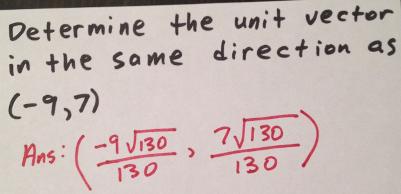 Determine the unit vector
in the same direction as
(-9,7)
Ans: (-9√130/130, 7√130/130)